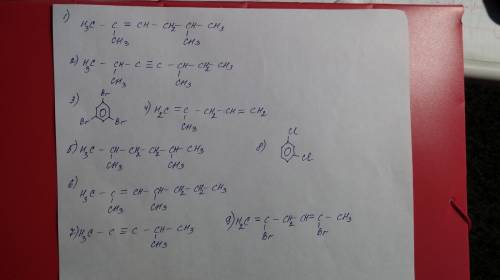 1) H3C - C = CH - CH2 - CH - CH3
CH3 CH3
2) H3C - CH - C ≡ C - CH - CH2 - CH3
CH3 CH3
3) Br Br Br 4) H2C = C - CH2 - CH = CH2
CH3
5) H3C - CH - CH2 - CH2 - CH - CH3 8) Cl Cl
CH3 CH3
6) H3C - C = CH - CH - CH2 - CH2 - CH3
CH3 CH3
7) H3C - C ≡ C - CH - CH3 9) H2C = C - CH2 - CH = C - CH3
CH3 Br Br